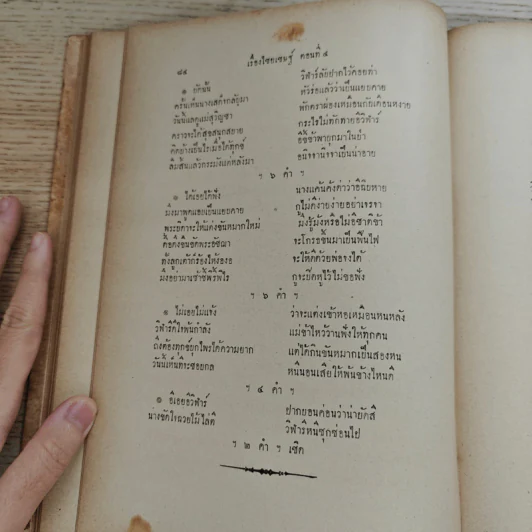 ๘๔ เรื่องไชยเชษฐ์ ตอนที่ ๔
๏ ยักษ์นั้น วิฬาร์ลักปากไว้คอยท่า
ครั้นเห็นนางเสด็จกลับมา ตัวร่อแล้วว่าเป็นแยบคาย
วันนี้แลดูแม่สุวิญชา พักตราผ่องเหมือนกับเดือนหงาย
คราวจะได้สุขสนุกสบาย กระไรไม่ทักทายอีวิฬาร์
อีขี้ข้าพายุกมาในยำ
ลืมสิ้นแล้วกรรมังแต่หลังมา อนิจจานิจจาเป็นน่าอาย
ฯ ๖ คำ ฯ
๏ ได้เอยได้ฟัง นางแค้นคั่งด่าว่าอีฉิบหาย
มึงมาพูดแยบเป็นแยบคาย กูไม่ดีง่ายง่ายอย่าเจรจา
พระยศจะให้แต่งขันหมากใหม่ มึงรู้มั่งหรือไม่อีชาติข้า
จะโกรธขึ้นมาเป็นฟืนไฟ
จะให้ตีด้วยพ่องจงได้
กูจะยึดหูไว้ไม่ขอฟัง
ฯ ๖ คำ ฯ
๏ ไม่เอยไม่แจ้ง ว่าจะแต่งเข้าหอเหมือนหนหลัง
วิฬาร์ดีใจพ้นกำลัง แม่ข้าไหว้วานฟังให้ทุกคน
ถึงต้องทุกข์บุกไพรได้ความยาก แต่ได้กินขันหมากเป็นสองหน
วันนี้เห็นทีระชอยกล หนีนอนเสียให้พ้นข้างไหนดี
ฯ ๔ คำ ฯ
๏ อีเอยอีวิฬาร์ ปากบอนค่อนว่าน่าบัดสี
นางขัดใจฉวยไม้ไล่ตี วิฬาร์หนีซุกซ่อนไป
ฯ ๒ คำ ฯ เชิด